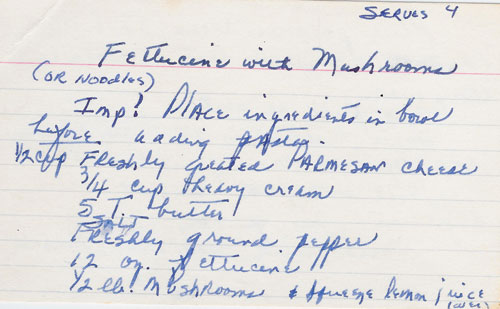 SERVES 4
Fettucine with Mushrooms
(OR NOODLES)
Imp! PLACE ingredients in bowl
before adding pasta.
1/2 cup FRESHLY grated PARMESAN cheese
3/4 cup heavy cream
5 T. butter
SALT
FRESHLY ground pepper
12 oz. Fettucine
1/2 lb. Mushrooms & squeeze lemon juice
(over)